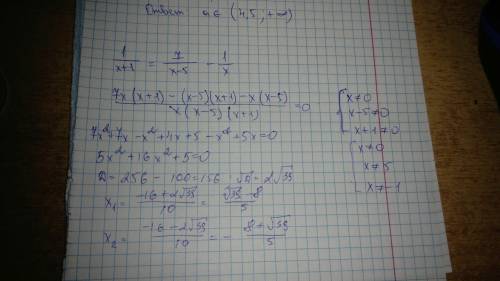 Ответ a ∈ (4,5, +∞)
1/(x+1) = 7/(x-5) - 1/x
(7x(x+1) - (x-5)(x+1) - x(x-5))/(x(x-5)(x+1)) = 0
{ x≠0
x-5≠0
x+1≠0
7x²+7x - x²+4x+5 - x²+5x=0
x≠0
5x²+16x²+5=0
x≠5
D = 256 - 100=156 √D = 2√39
x≠-1
x₁ = (-16+2√39)/10 = (√39-8)/5
x₂ = (-16-2√39)/10 = - (8+√39)/5